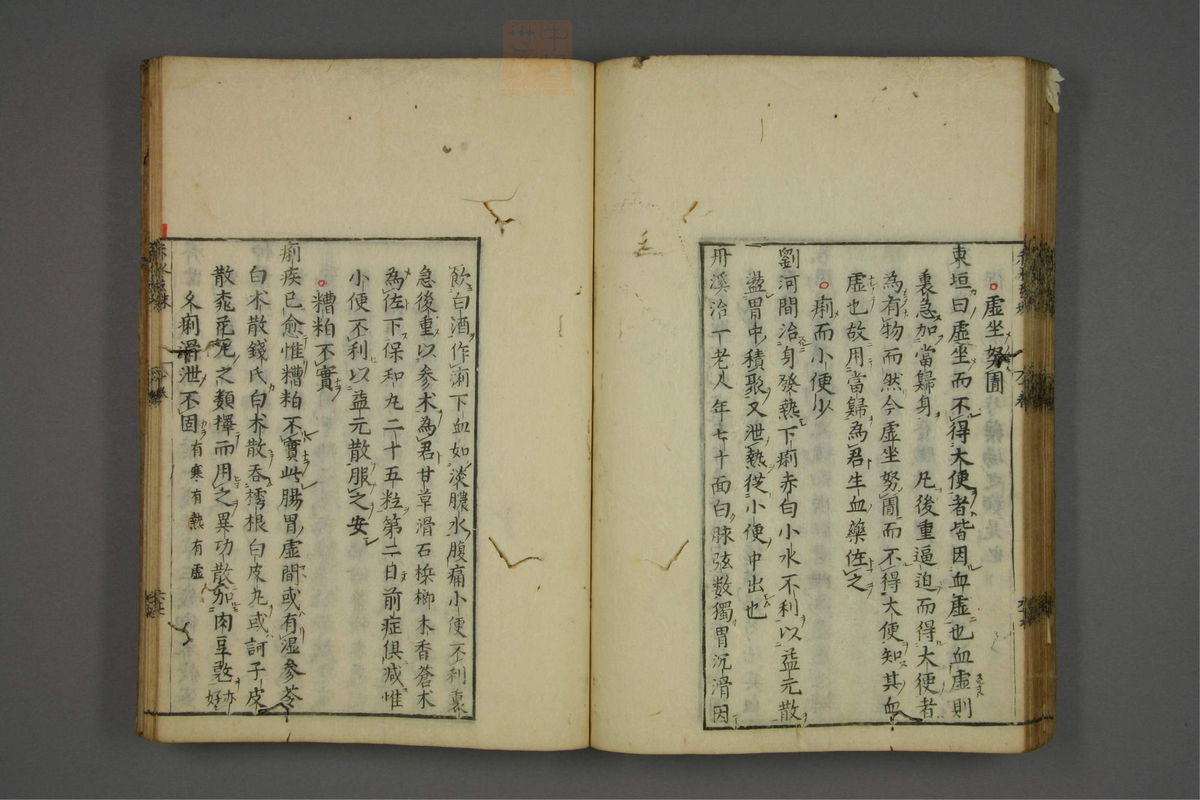 虛坐努圊
東垣曰虛坐而不得大便者皆因血虛也血虛則
裏急加當歸身 凡後重逼迫而得大便者
為有物而然今虛坐努圊而不得大便知其血
虛也故用當歸為君生血藥佐之
痢而小便少
劉河間治身發熱下痢赤白小水不利以益元散
盪胃中積聚又泄熱從小便中出也
丹溪治一老人年七十面白脉弦数獨胃沉滑因
飲白酒作痢下血如淡膿水腹痛小便不利裏
急後重以参术為君甘草滑石梹榔木香蒼术
為佐下保和丸二十五粒第二日前症俱减惟
小便不利以益元散服之安
糟粕不實
痢疾已愈惟糟粕不實此腸胃虛間或有湿參苓
白术散錢氏白术散吞樗根白皮丸或訶子皮
散
之類擇而用之異功散加肉豆蔻亦好
久痢滑泄不固 有寒有熱有虛